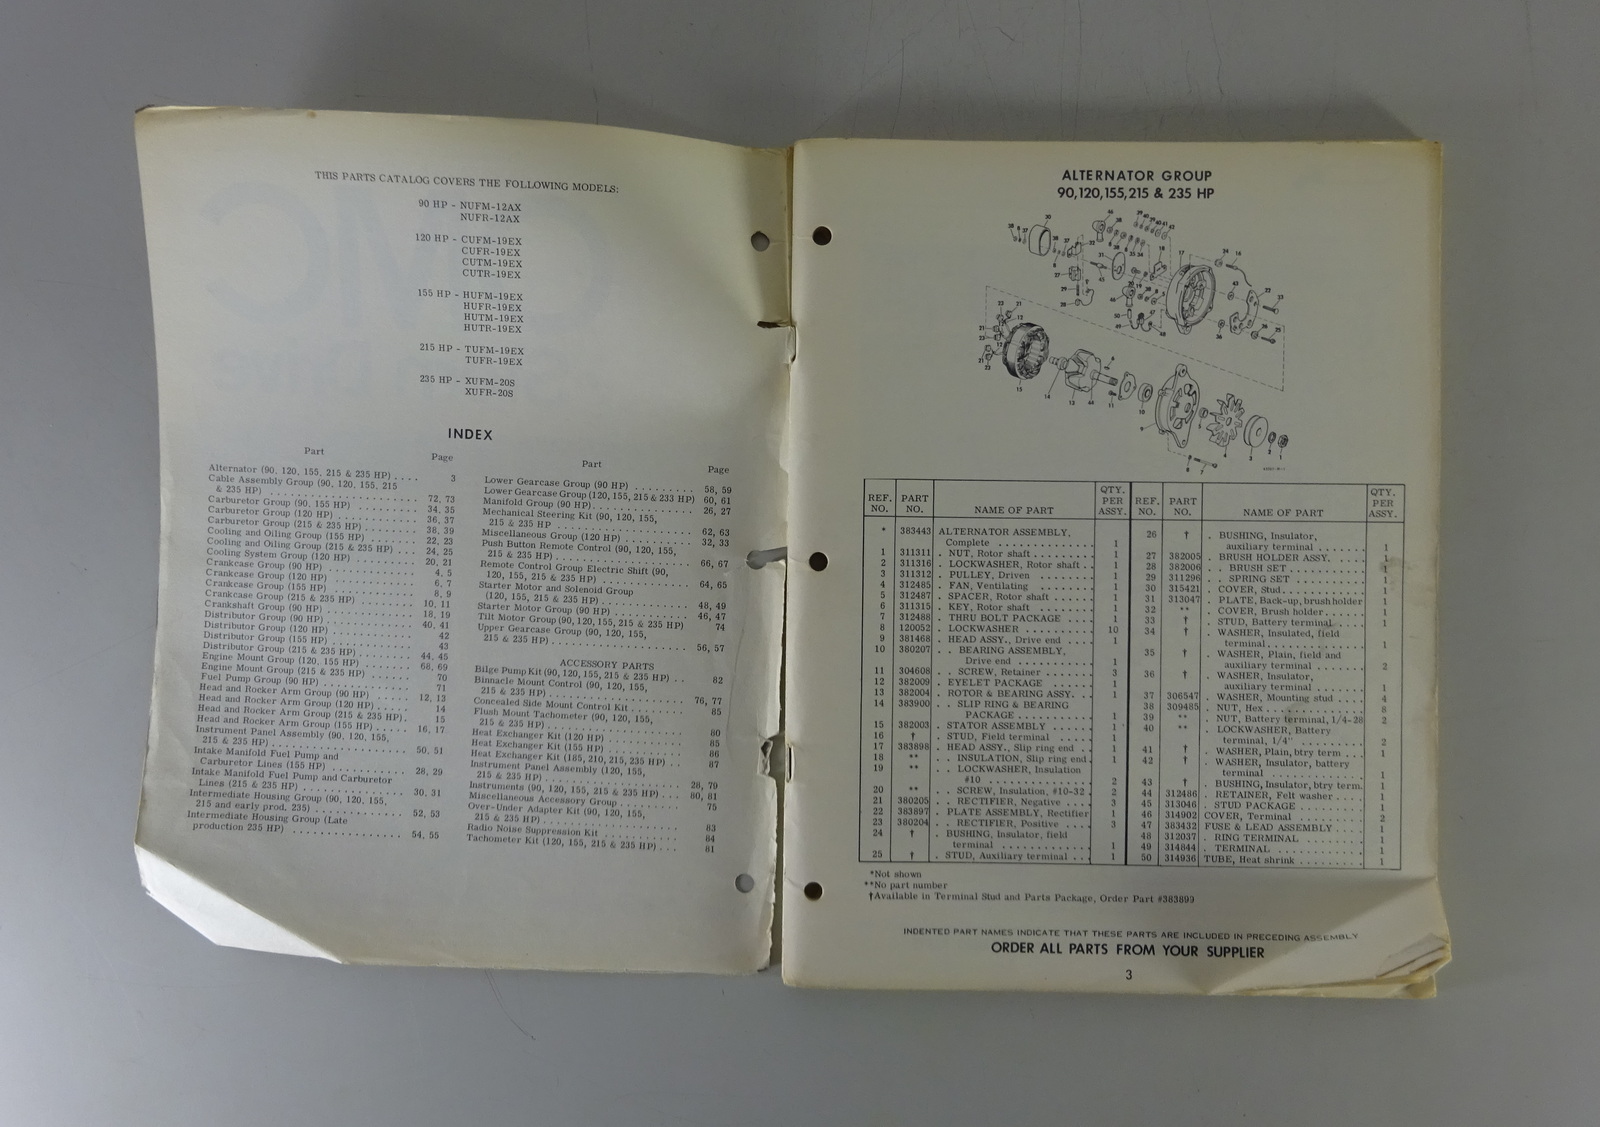 THIS PARTS CATALOG COVERS THE FOLLOWING MODELS:
90 HP - NUFM-12AX
NUFR-12AX
120 HP - CUFM-19EX
CUFR-19EX
CUTM-19EX
CUTR-19EX
155 HP - HUFM-19EX
HUFR-19EX
HUTM-19EX
HUTR-19EX
215 HP - TUFM-19EX
TUFR-19EX
235 HP - XUFM-20S
XUFR-20S
INDEX
Part Page
Alternator (90, 120, 155, 215 & 235 HP) .... 3
Cable Assembly Group (90, 120, 155, 215
& 235 HP) .... 72, 73
Carburetor Group (90, 155 HP) .... 34, 35
Carburetor Group (120 HP) .... 36, 37
Carburetor Group (215 & 235 HP) .... 38, 39
Cooling and Oiling Group (155 HP) .... 22, 23
Cooling and Oiling Group (215 & 235 HP) ... 24, 25
Cooling System Group (120 HP) .... 20, 21
Crankcase Group (90 HP) .... 4, 5
Crankcase Group (120 HP) .... 6, 7
Crankcase Group (155 HP) .... 8, 9
Crankcase Group (215 & 235 HP) .... 10, 11
Crankshaft Group (90 HP) .... 18, 19
Distributor Group (90 HP) .... 40, 41
Distributor Group (120 HP) .... 42
Distributor Group (155 HP) .... 43
Distributor Group (215 & 235 HP) .... 44, 45
Engine Mount Group (120, 155 HP) .... 68, 69
Engine Mount Group (215 & 235 HP) .... 70
Fuel Pump Group (90 HP) .... 71
Head and Rocker Arm Group (90 HP) .... 12, 13
Head and Rocker Arm Group (120 HP) .... 14
Head and Rocker Arm Group (215 & 235 HP). 15
Head and Rocker Arm Group (155 HP) .... 16, 17
Instrument Panel Assembly (90, 120, 155,
215 & 235 HP) .... 50, 51
Intake Manifold Fuel Pump and
Carburetor Lines (155 HP) .... 28, 29
Intake Manifold Fuel Pump and Carburetor
Lines (215 & 235 HP) .... 30, 31
Intermediate Housing Group (90, 120, 155,
215 and early prod. 235) .... 52, 53
Intermediate Housing Group (Late
production 235 HP) .... 54, 55
Part Page
Lower Gearcase Group (90 HP) .... 58, 59
Lower Gearcase Group (120, 155, 215 & 233 HP) 60, 61
Manifold Group (90 HP) .... 26, 27
Mechanical Steering Kit (90, 120, 155,
215 & 235 HP .... 62, 63
Miscellaneous Group (120 HP) .... 32, 33
Push Button Remote Control (90, 120, 155,
215 & 235 HP) .... 66, 67
Remote Control Group Electric Shift (90,
120, 155, 215 & 235 HP) .... 64, 65
Starter Motor and Solenoid Group
(120, 155, 215 & 235 HP) .... 48, 49
Starter Motor Group (90 HP) .... 46, 47
Tilt Motor Group (90, 120, 155, 215 & 235 HP) 74
Upper Gearcase Group (90, 120, 155,
215 & 235 HP) .... 56, 57
ACCESSORY PARTS
Bilge Pump Kit (90, 120, 155, 215 & 235 HP) .. 82
Binnacle Mount Control (90, 120, 155,
215 & 235 HP) .... 76, 77
Concealed Side Mount Control Kit .... 85
Flush Mount Tachometer (90, 120, 155,
215 & 235 HP) .... 80
Heat Exchanger Kit (120 HP) .... 85
Heat Exchanger Kit (155 HP) .... 86
Heat Exchanger Kit (185, 210, 215, 235 HP) ... 87
Instrument Panel Assembly (120, 155,
215 & 235 HP) .... 28, 79
Instruments (90, 120, 155, 215 & 235 HP) ... 80, 81
Miscellaneous Accessory Group .... 75
Over-Under Adapter Kit (90, 120, 155,
215 & 235 HP) .... 83
Radio Noise Suppression Kit .... 84
Tachometer Kit (120, 155, 215 & 235 HP) ... 81
ALTERNATOR GROUP
90,120,155,215 & 235 HP
REF. NO. PART NO. NAME OF PART QTY. PER ASSY.
* 383443 ALTERNATOR ASSEMBLY,
Complete .... 1
1 311311 . NUT, Rotor shaft .... 1
2 311316 . LOCKWASHER, Rotor shaft .. 1
3 311312 . PULLEY, Driven .... 1
4 312485 . FAN, Ventilating .... 1
5 312487 . SPACER, Rotor shaft .... 1
6 311315 . KEY, Rotor shaft .... 1
7 312488 . THRU BOLT PACKAGE .... 1
8 120052 . LOCKWASHER .... 10
9 381468 . HEAD ASSY., Drive end .. 1
10 380207 . . BEARING ASSEMBLY,
Drive end .... 1
11 304608 . . SCREW, Retainer .... 3
12 382009 . EYELET PACKAGE .... 1
13 382004 . ROTOR & BEARING ASSY. . . 1
14 383900 . . SLIP RING & BEARING
PACKAGE .... 1
15 382003 . STATOR ASSEMBLY .... 1
16 † . STUD, Field terminal .... 1
17 383898 . HEAD ASSY., Slip ring end . . 1
18 ** . . INSULATION, Slip ring end. 1
19 ** . . LOCKWASHER, Insulation
#10 .... 2
20 ** . . SCREW, Insulation, #10-32 . 2
21 380205 . . RECTIFIER, Negative .... 3
22 383897 . PLATE ASSEMBLY, Rectifier 1
23 380204 . . RECTIFIER, Positive .... 3
24 † . BUSHING, Insulator, field
terminal .... 1
25 † . STUD, Auxiliary terminal . . . 1
REF. NO. PART NO. NAME OF PART QTY. PER ASSY.
26 † . BUSHING, Insulator,
auxiliary terminal .... 1
27 382005 . BRUSH HOLDER ASSY. . 1
28 382006 . . BRUSH SET .... 1
29 311296 . . SPRING SET .... 1
30 315421 . COVER, Stud .... 1
31 313047 . PLATE, Back-up, brush holder 1
32 ** . COVER, Brush holder .... 1
33 † . STUD, Battery terminal .... 1
34 † . WASHER, Insulated, field
terminal .... 1
35 † . WASHER, Plain, field and
auxiliary terminal .... 2
36 † . WASHER, Insulator,
auxiliary terminal .... 1
37 306547 . WASHER, Mounting stud .... 4
38 309485 . NUT, Hex .... 8
39 ** . NUT, Battery terminal, 1/4-28 2
40 ** . LOCKWASHER, Battery
terminal, 1/4" .... 2
41 † . WASHER, Plain, btry term .. 1
42 † . WASHER, Insulator, battery
terminal .... 1
43 † . BUSHING, Insulator, btry term. 1
44 312486 . RETAINER, Felt washer .... 1
45 313046 . STUD PACKAGE .... 1
46 314902 COVER, Terminal .... 2
47 383432 FUSE & LEAD ASSEMBLY .... 1
48 312037 . RING TERMINAL .... 1
49 314844 . TERMINAL .... 1
50 314936 TUBE, Heat shrink .... 1
*Not shown
**No part number
†Available in Terminal Stud and Parts Package, Order Part #383899
INDENTED PART NAMES INDICATE THAT THESE PARTS ARE INCLUDED IN PRECEDING ASSEMBLY
ORDER ALL PARTS FROM YOUR SUPPLIER
3